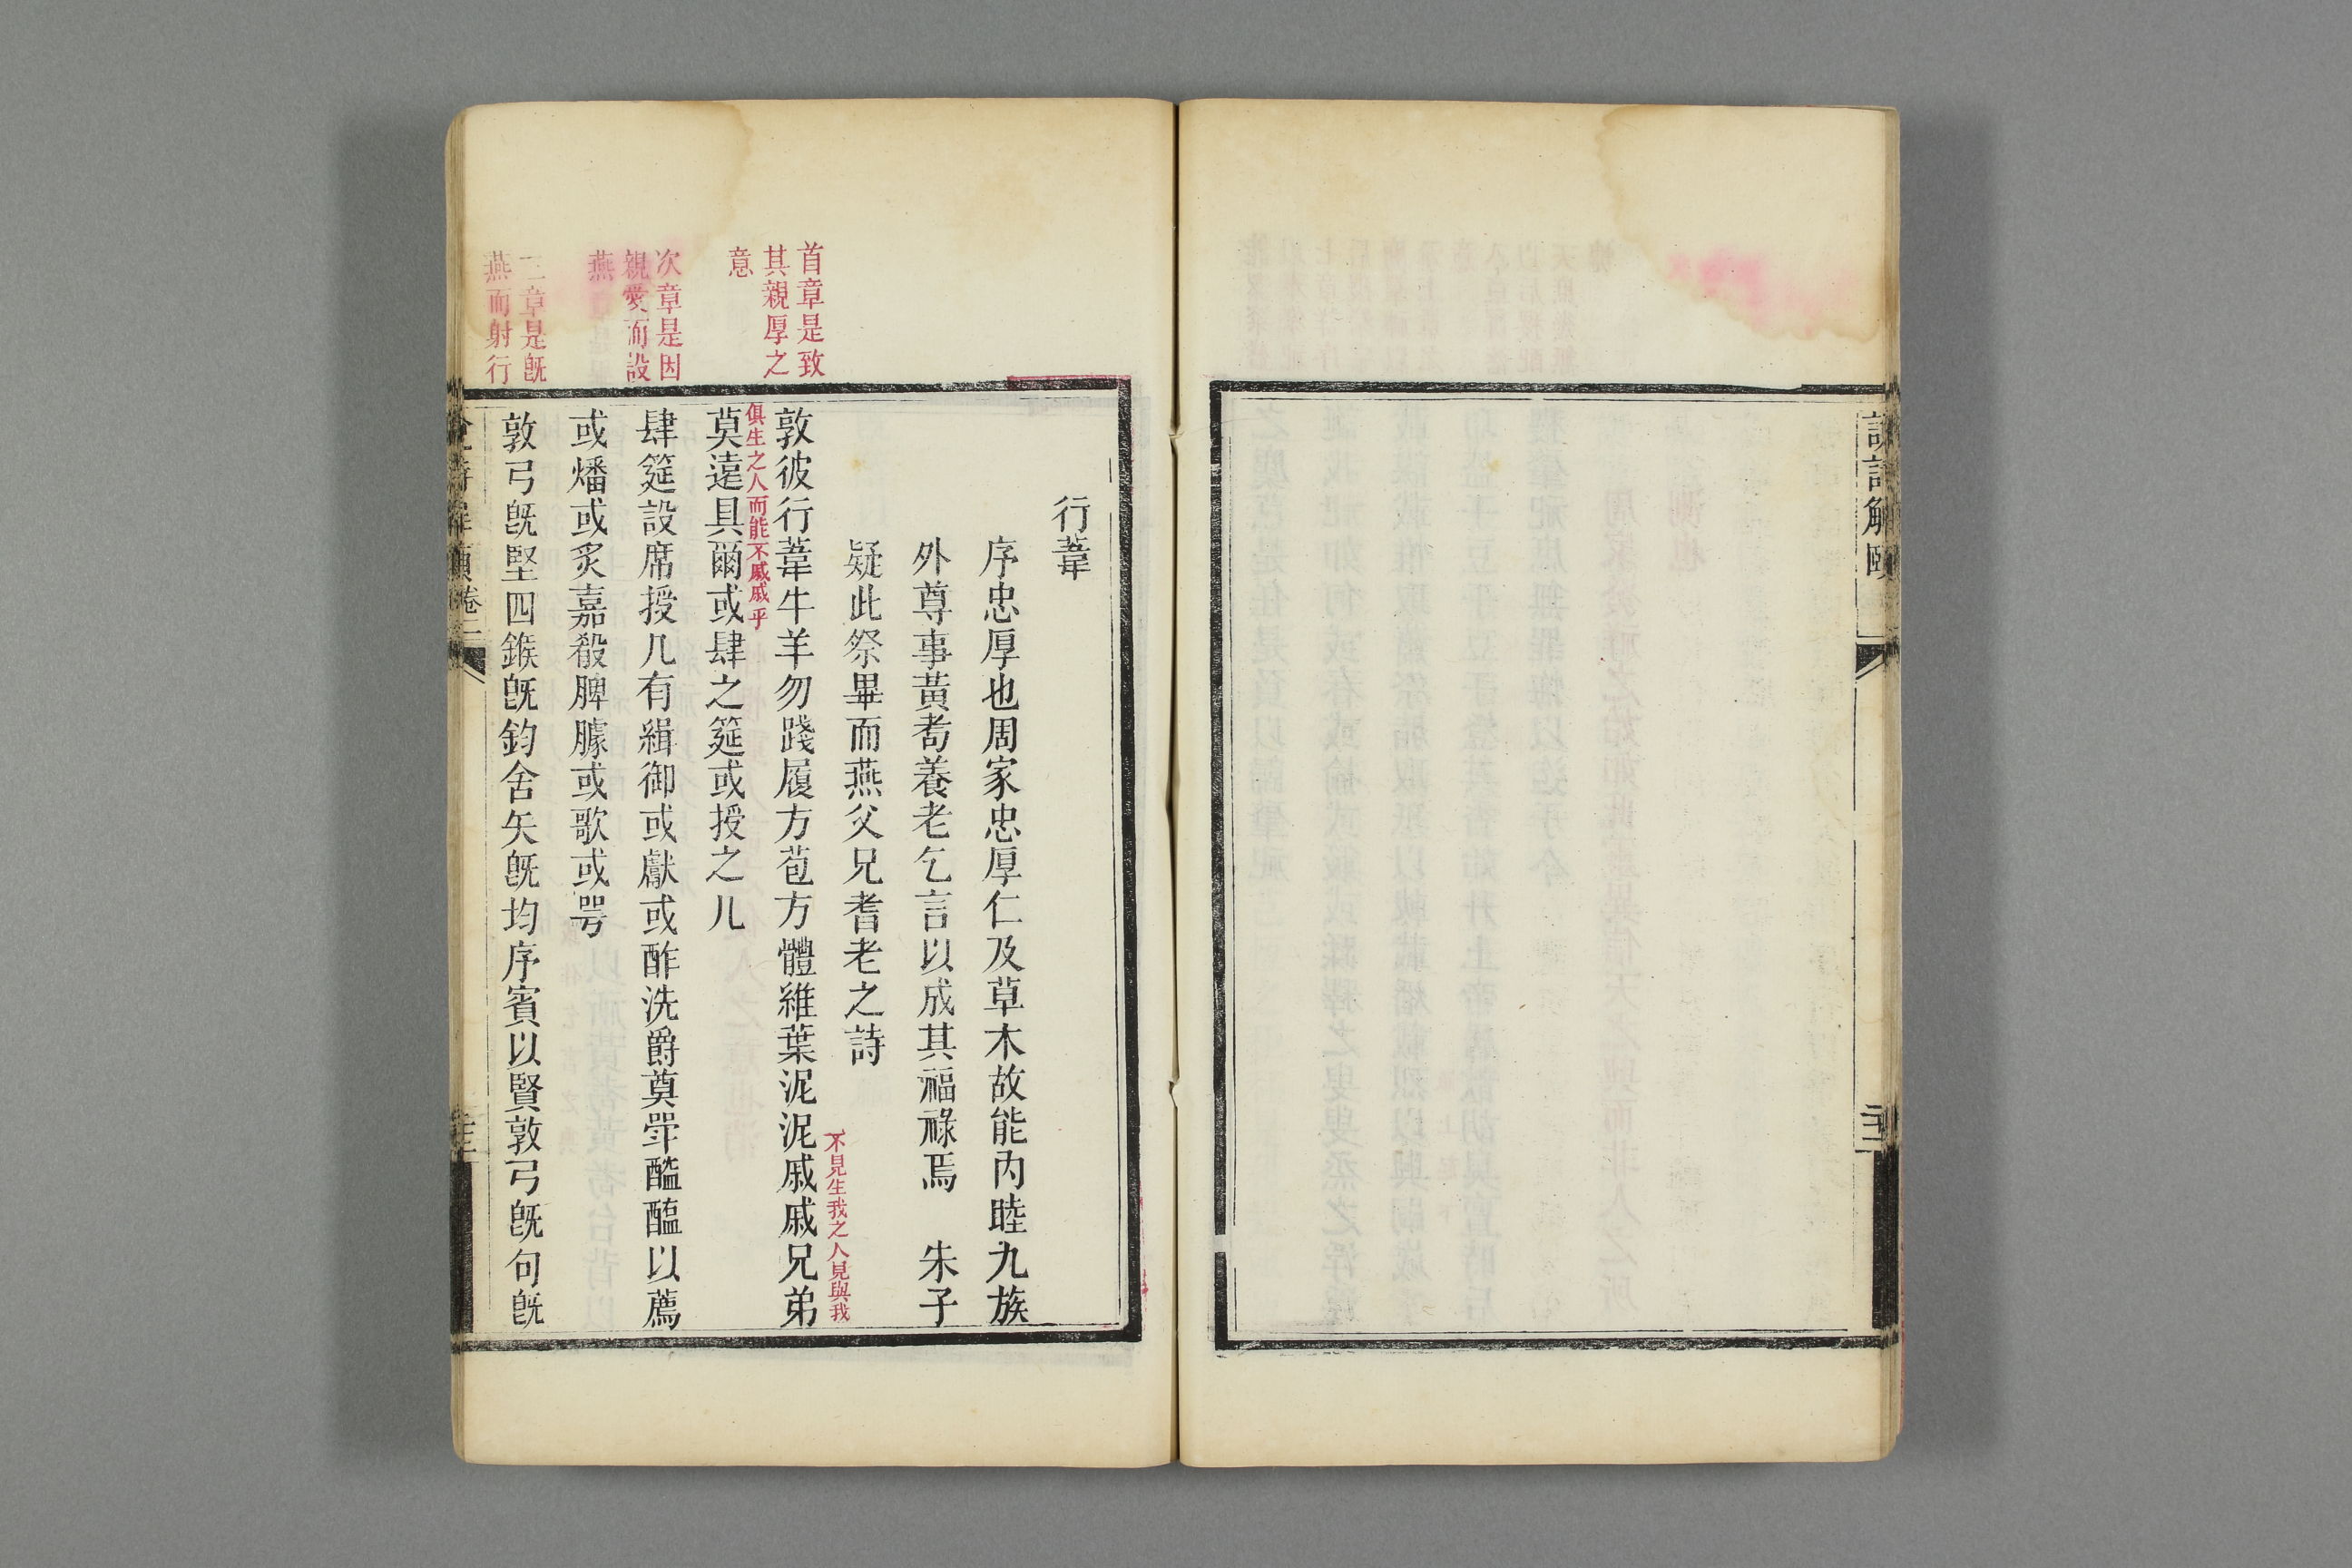 說詩解頤
行葦
序忠厚也周家忠厚仁及草木故能內睦九族
外尊事黃耇養老乞言以成其福祿焉　朱子
疑此祭畢而燕父兄耆老之詩
不見生我之人見與我
敦彼行葦牛羊勿踐履方苞方體維葉泥泥戚戚兄弟
俱生之人而能不戚戚乎
莫遠具爾或肆之筵或授之几
肆筵設席授几有緝御或獻或酢洗爵奠斝醓醢以薦
或燔或炙嘉殽脾臄或歌或咢
敦弓旣堅四鍭旣鈞舍矢旣均序賓以賢敦弓旣句旣
首章是致
其親厚之
意
次章是因
親愛而設
燕
三章是旣
燕而射行
卷二